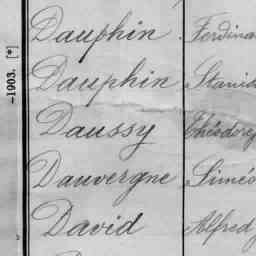 Dauphin Ferdina
Dauphin Stanis
Daussy Théodore
Dauvergne Siméo
David Alfred
–1903. [*]